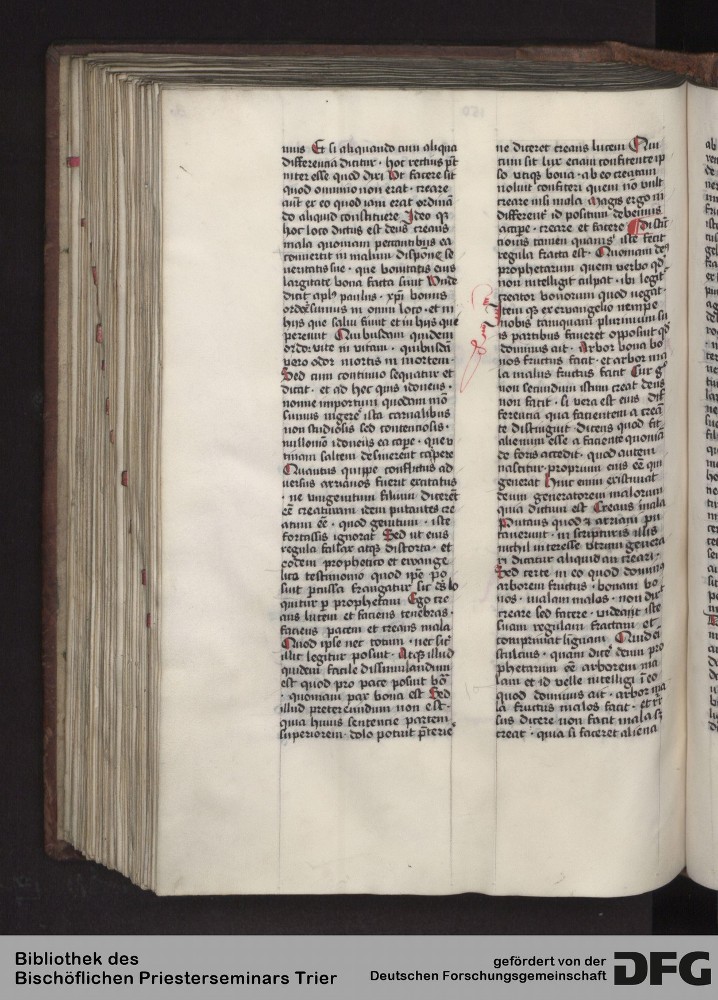 mus Et si aliquando cum aliqua
differentia dicitur · hoc rectius pt
inter esse quod dixi Vt facere sit
quod omnino non erat · creare
aut̄ ex eo quod iam erat ordinā
do aliquid constituere Ideo qͥ
hoc loco dictus est deus creans
mala quoniam peccantibus ea
conuertit in malum dispone se
ueritatis sue · que bonitatis eius
largitate bona facta sunt Vnde
dicit apl̄s paulus · xp̄i bonus
odor sumus in omni loco · et in
hijs qui salui fiunt et in hijs que
pereunt Quibusdam quidem
odor vite in vitam · quibusdā
vero odor mortis in mortem
Sed cum continuo sequatur et
dicat · et ad hec quis idoneus ·
nonne importuni quodam mō
sumus ingere ista carnalibus
non studiosis sed contenciosis ·
nullomō idoneis ea cape · que v
tinam saltem desinerent carpere
Quantus quippe conflictus ad
uersus arrianos fuerit excitatus
· ne vnigenitum filium dicerēt
eē creaturam idem putantes cre
atum eē · quod genitum · iste
fortassis ignorat Sed ut eius
regula fallax atqȝ distorta · et
eodem prophetico et ewange
lico testimonio quod ip̄e po
suit percussa frangatur sic dēs lo
quitur p prophetam Ego cre
ans lucem et faciens tenebras ·
faciens pacem et creans mala
Quod ipse nec totum · nec sic̄
illic legitur posuit · Atqȝ illud
quidem facile dissimulandum
est quod pro pace posuit bōa
· quoniam pax bona est Sed
illud pretereundum non est ·
quia huius sentencie partem
superiorem · dolo potuit p̄terie
ne diceret creans lucem Qui
cum sit lux eciam confitente ip
so vtiqȝ bona · ab eo creatam
noluit confiteri quem nō vult
creare nisi mala Magis ergo in
differenter id positum debemus
accipe · creare et facere Distin
cionis tamen quamuis iste fecit
regula fracta est · Quoniam deū
prophetarum quem verbo qd̄
non intelligit culpat · ibi legit
creator bonorum quod negat ·
Item qȝ ex ewangelio nempe
nobis tamquam plurimum su
is partibus faueret opposuit qd̄
dominus ait · Arbor bona bo
nos fructus facit · et arbor ma
la malus fructus facit Cur gͦ
non secundum istum creat deus
non facit · si vera est eius dif
ferencia qua facientem a creā
te distinguit dicens quod fit
alienum esse a faciente quoniā
de foris accedit · quod autem
nascitur proprium eius eē qui
generat Hinc enim existimat
deum generatorem malorum
quia dictum est Creans mala
Putans quod & arriani pu
tauerunt · in scripturis illis
nichyl interesse vtrum genera
ri dicatur aliquid an creari ·
Sed certe in eo quod dominus
arborem fructus · bonam bo
nos · malam malos · non dix̄
creare sed facere · videant iste
suam regulam fractam et
comprimat lignam Quid ei
stulcius · quam dic̄e deum pro
phetarum eē arborem ma
lam et id velle intelligi ī eo
quod dominus ait · arbor ma
la fructus malos facit · et rur
sus dicere non facit mala sȝ
creat · quia si faceret aliena
Bibliothek des
Bischöflichen Priesterseminars Trier
gefördert von der
Deutschen Forschungsgemeinschaft
DFG